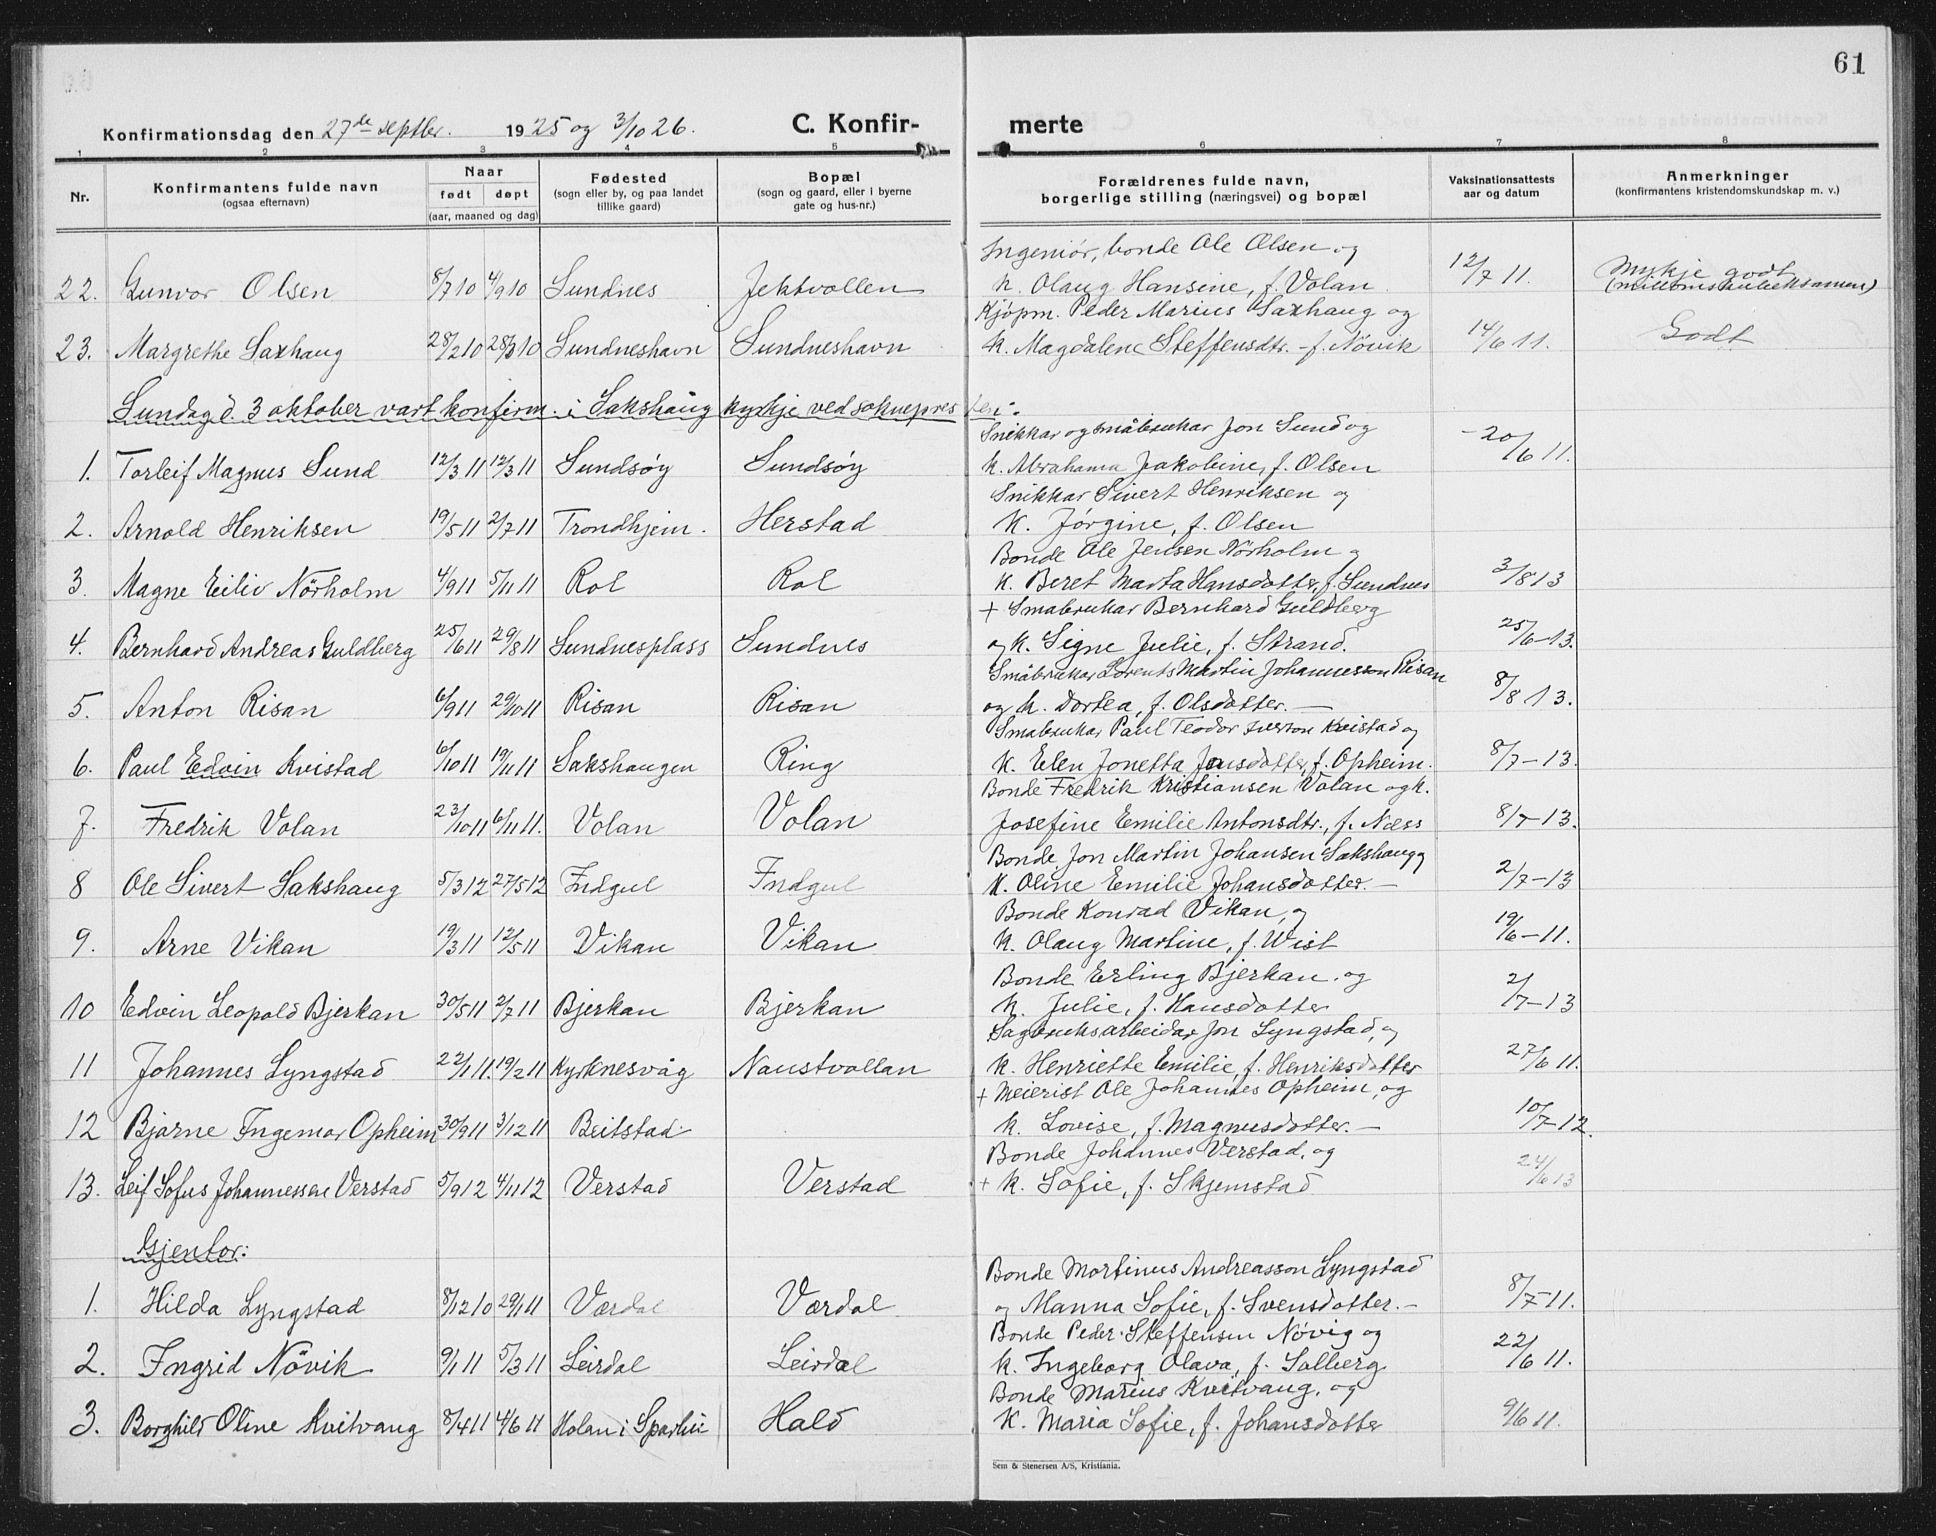 61
Konfirmationsdag den 27de septbr. 1925 og 3/10 26. C. Konfirmerte
1 2 3 4 5 6 7 8
Nr. Konfirmantens fulde navn (ogsaa efternavn) Naar født døpt (aar, maaned og dag) Fødested (sogn eller by, og paa landet tillike gaard) Bopæl (sogn og gaard, eller i byerne gate og hus-nr.) Forældrenes fulde navn, borgerlige stilling (næringsvei) og bopæl Vaksinationsattests aar og datum Anmerkninger (konfirmantens kristendomskundskap m. v.)
Ingeniør, bonde Ole Olsen og
22. Gunvor Olsen 8/7 10 4/9 10 Sundnes Jektvollen k. Olaug Hansine, f. Volan 12/7 11. Mykje godt
Kjøpm. Peder Marius Saxhaug og
23. Margrethe Saxhaug 28/2 10 28/3 10 Sundneshavn Sundneshavn k. Magdalene Steffensdtr. f. Növik 14/6 11. Godt
Sundag d. 3 oktober vart konfirm. i Sakshaug kyrkje ved soknepresten:
Snikkar og småbrukar Jon Sund og
1. Torleif Magnus Sund 12/3 11 12/3 11 Sundsøy Sundsøy k. Abrahama Jakobine, f. Olsen 20/6 11.
Snikkar Sivert Henriksen og
2. Arnold Henriksen 19/5 11 2/7 11 Trondhjem. Herstad k. Jörgine, f. Olsen
Bonde Ole Jensen Nörholm og
3. Magne Eiliv Nörholm 4/9 11 5/11 11 Rol Rol k. Beret Marta Hansdotter, f. Sundnes 3/8 13
+ Småbrukar Bernhard Guldberg
4. Bernhard Andreas Guldberg 25/6 11 29/8 11 Sundnesplass Sundnes og k. Signe Julie, f. Strand. 25/6-13.
Småbrukar Lorents Martin Johannesson Risan
5. Anton Risan 6/9 11 29/10 11 Risan Risan og k. Dortea, f. Olsdotter. — 8/8 13.
Småbrukar Paul Teodor Iverson Kvistad og
6. Paul Edvin Kvistad 6/10 11 19/11 11 Sakshaugen Ring k. Elen Jonetta Jonsdotter, f. Opheim. 8/7-13.
Bonde Fredrik Kristiansen Volan og k.
7. Fredrik Volan 23/10 11 6/11 11. Volan Volan Josefine Emilie Antonsdtr., f. Næss 8/7-13.
Bonde Jon Martin Johansen Sakshaug og
8 Ole Sivert Sakshaug 5/3 12 27/5 12 Indgul Indgul k. Oline Emilie Johansdotter. — 2/7-13
Bonde Konrad Vikan, og
9. Arne Vikan 19/3 11 12/5 11 Vikan Vikan k. Olaug Martine, f. Wist 19/6-11.
Bonde Erling Bjerkan. og
10 Edvin Leopold Bjerkan 30/5 11 2/7 11 Bjerkan Bjerkan k. Julie, f. Hansdotter 2/7-13
Sagbruksarbeidar Jon Lyngstad, og
11 Johannes Lyngstad 22/1 11. 19/2 11 Kyrknesvåg Naustvollan k. Henriette Emilie, f. Henriksdotter 27/6 11.
+ Meierist Ole Johannes Opheim, og
12 Bjarne Ingemar Opheim 30/9 11 3/12 11 Beitstad k. Lovise, f. Magnusdotter. — 10/7-12.
Bonde Johannes Verstad, og
13. Leif Sofus Johannessen Verstad 5/9 12 4/11 12 Verstad Verstad + k. Sofie, f. Skjemstad 24/6 13
Gjentor:
Bonde Martinus Andreasson Lyngstad
1. Hilda Lyngstad 8/12 10 29/1 11 Værdal Værdal og Manna Sofie, f. Svensdotter. — 8/7-11.
Bonde Peder Steffensen Növig og
2. Ingrid Növik 9/1 11 5/3 11 Leirdal Leirdal k. Ingeborg Olava, f. Solberg 22/6 11.
Bonde Marius Kvitvang, og
3. Borghild Oline Kvitvang 8/4 11 4/6 11 Holan i Sparbu Hald k. Maria Sofie, f. Johansdotter 9/6 11.
Sem & Stenersen A/S, Kristiania.